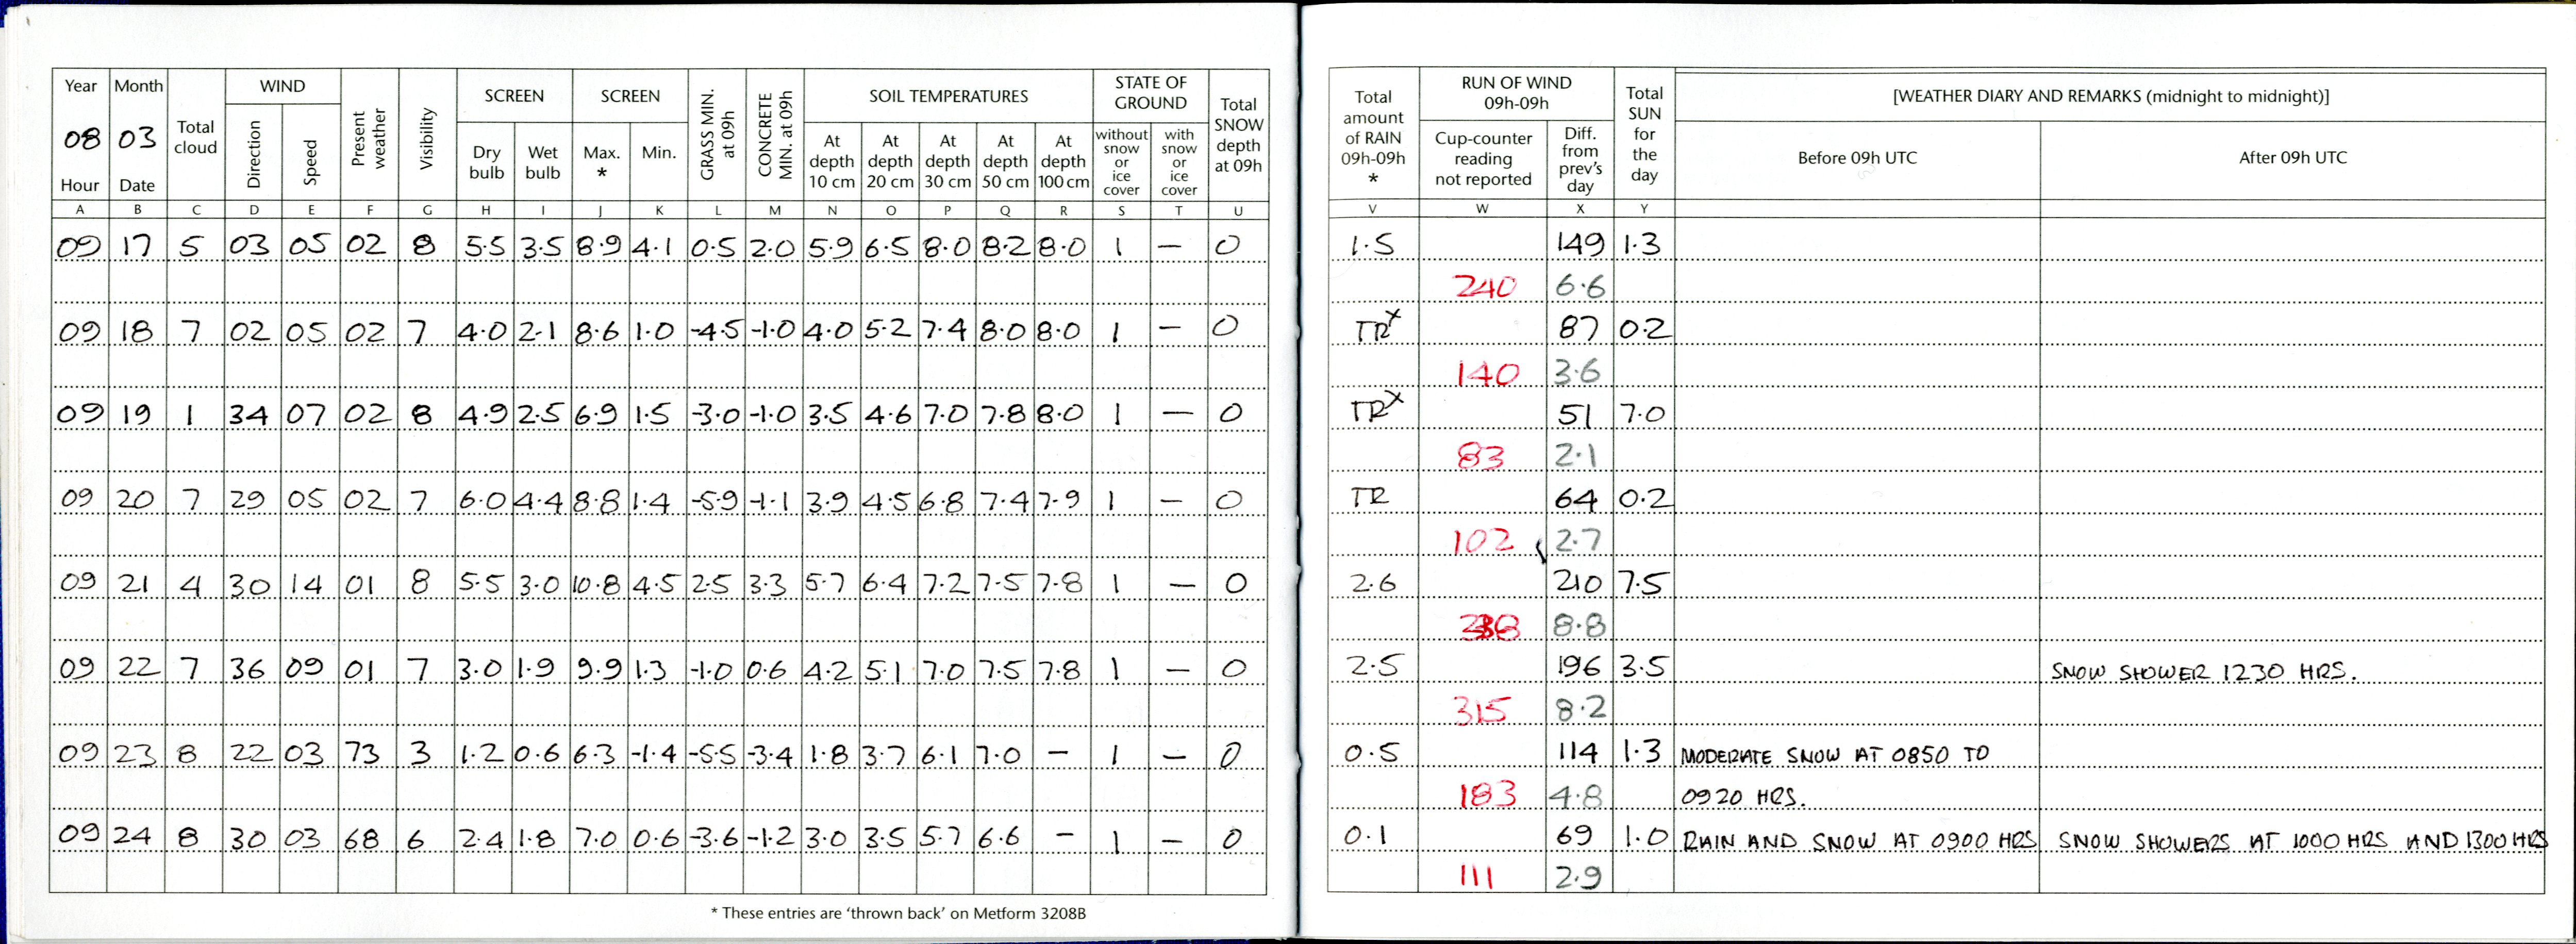 Year Month Total cloud WIND Present weather Visibility SCREEN SCREEN GRASS MIN. at 09h CONCRETE MIN. at 09h SOIL TEMPERATURES STATE OF GROUND Total SNOW depth at 09h
08 03
Hour Date Direction Speed Dry bulb Wet bulb Max. * Min. At depth 10 cm At depth 20 cm At depth 30 cm At depth 50 cm At depth 100 cm without snow or ice cover with snow or ice cover
A B C D E F G H I J K L M N O P Q R S T U
09 17 5 03 05 02 8 5.5 3.5 8.9 4.1 0.5 2.0 5.9 6.5 8.0 8.2 8.0 1 — 0
09 18 7 02 05 02 7 4.0 2.1 8.6 1.0 -4.5 -1.0 4.0 5.2 7.4 8.0 8.0 1 — 0
09 19 1 34 07 02 8 4.9 2.5 6.9 1.5 -3.0 -1.0 3.5 4.6 7.0 7.8 8.0 1 — 0
09 20 7 29 05 02 7 6.0 4.4 8.8 1.4 -5.9 -1.1 3.9 4.5 6.8 7.4 7.9 1 — 0
09 21 4 30 14 01 8 5.5 3.0 10.8 4.5 2.5 3.3 5.7 6.4 7.2 7.5 7.8 1 — 0
09 22 7 36 09 01 7 3.0 1.9 9.9 1.3 -1.0 0.6 4.2 5.1 7.0 7.5 7.8 1 — 0
09 23 8 22 03 73 3 1.2 0.6 6.3 -1.4 -5.5 -3.4 1.8 3.7 6.1 7.0 — 1 — 0
09 24 8 30 03 68 6 2.4 1.8 7.0 0.6 -3.6 -1.2 3.0 3.5 5.7 6.6 — 1 — 0
* These entries are ‘thrown back’ on Metform 3208B
Total amount of RAIN 09h-09h * RUN OF WIND 09h-09h Total SUN for the day [WEATHER DIARY AND REMARKS (midnight to midnight)]
Cup-counter reading not reported Diff. from prev's day Before 09h UTC After 09h UTC
V W X Y
1.5 149 1.3
240 6.6
TRx 87 0.2
140 3.6
TRx 51 7.0
83 2.1
TR 64 0.2
102 2.7
2.6 210 7.5
8.8
2.5 196 3.5 SNOW SHOWER 1230 HRS.
315 8.2
0.5 114 1.3 MODERATE SNOW AT 0850 TO
183 4.8 0920 HRS.
0.1 69 1.0 RAIN AND SNOW AT 0900 HRS SNOW SHOWERS AT 1000 HRS AND 1300 HRS
111 2.9